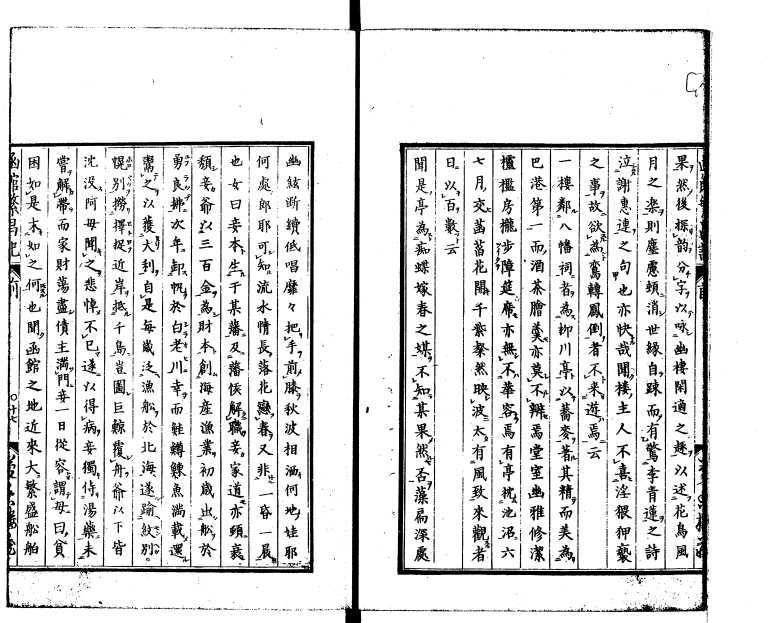 果然後探韵分字以咏幽棲閑適之趣以述花鳥風
月之楽則塵慮頓消世緣自踈而有驚李青蓮之詩
泣謝惠連之句也亦快哉聞樓主人不喜淫猥狎褻
之事故欲為鸞轉鳳倒者不来遊焉云
一樓鄰八幡祠者為柳川亭以蕎麥著其精而美為
巴港第一而酒茶膾羹亦莫不辨焉堂室幽雅修潔
櫺檻房櫳步障筵席亦無不華容焉有亭枕池沼六
七月交菡萏花開千紫粲然映波太有風致来觀者
日以百數云
聞是亭為痴蝶嫁春之媒不知其果然否藻扃深處
幽絃断續低唱靡々把手前膝秋波相洒何地娃耶
何處郎耶可知流水情長落花戀春又非一昏一晨
也女曰妾本生于某藩及藩侯解職妾家道亦頭衰
頽妾爺以三百金為財本創海産漁業初歲出舩於
勇良拂次年卸帆於白老川幸而鮭鱒鰊魚満載還
鬻之以獲大利自是每歲泛漁舩於北海遂踰紋別
幌別撈擇捉近岸越千島豈圖巨鯨覆舟爺以下皆
沈没阿母聞之悲悼不已遂以得病妾獨侍湯藥未
嘗解帶而家財蕩盡債主満門妾一日從容謂母曰貧
困如是本如之何也聞函館之地近來大繁盛舩舶
函館繁昌記
前
〇十七